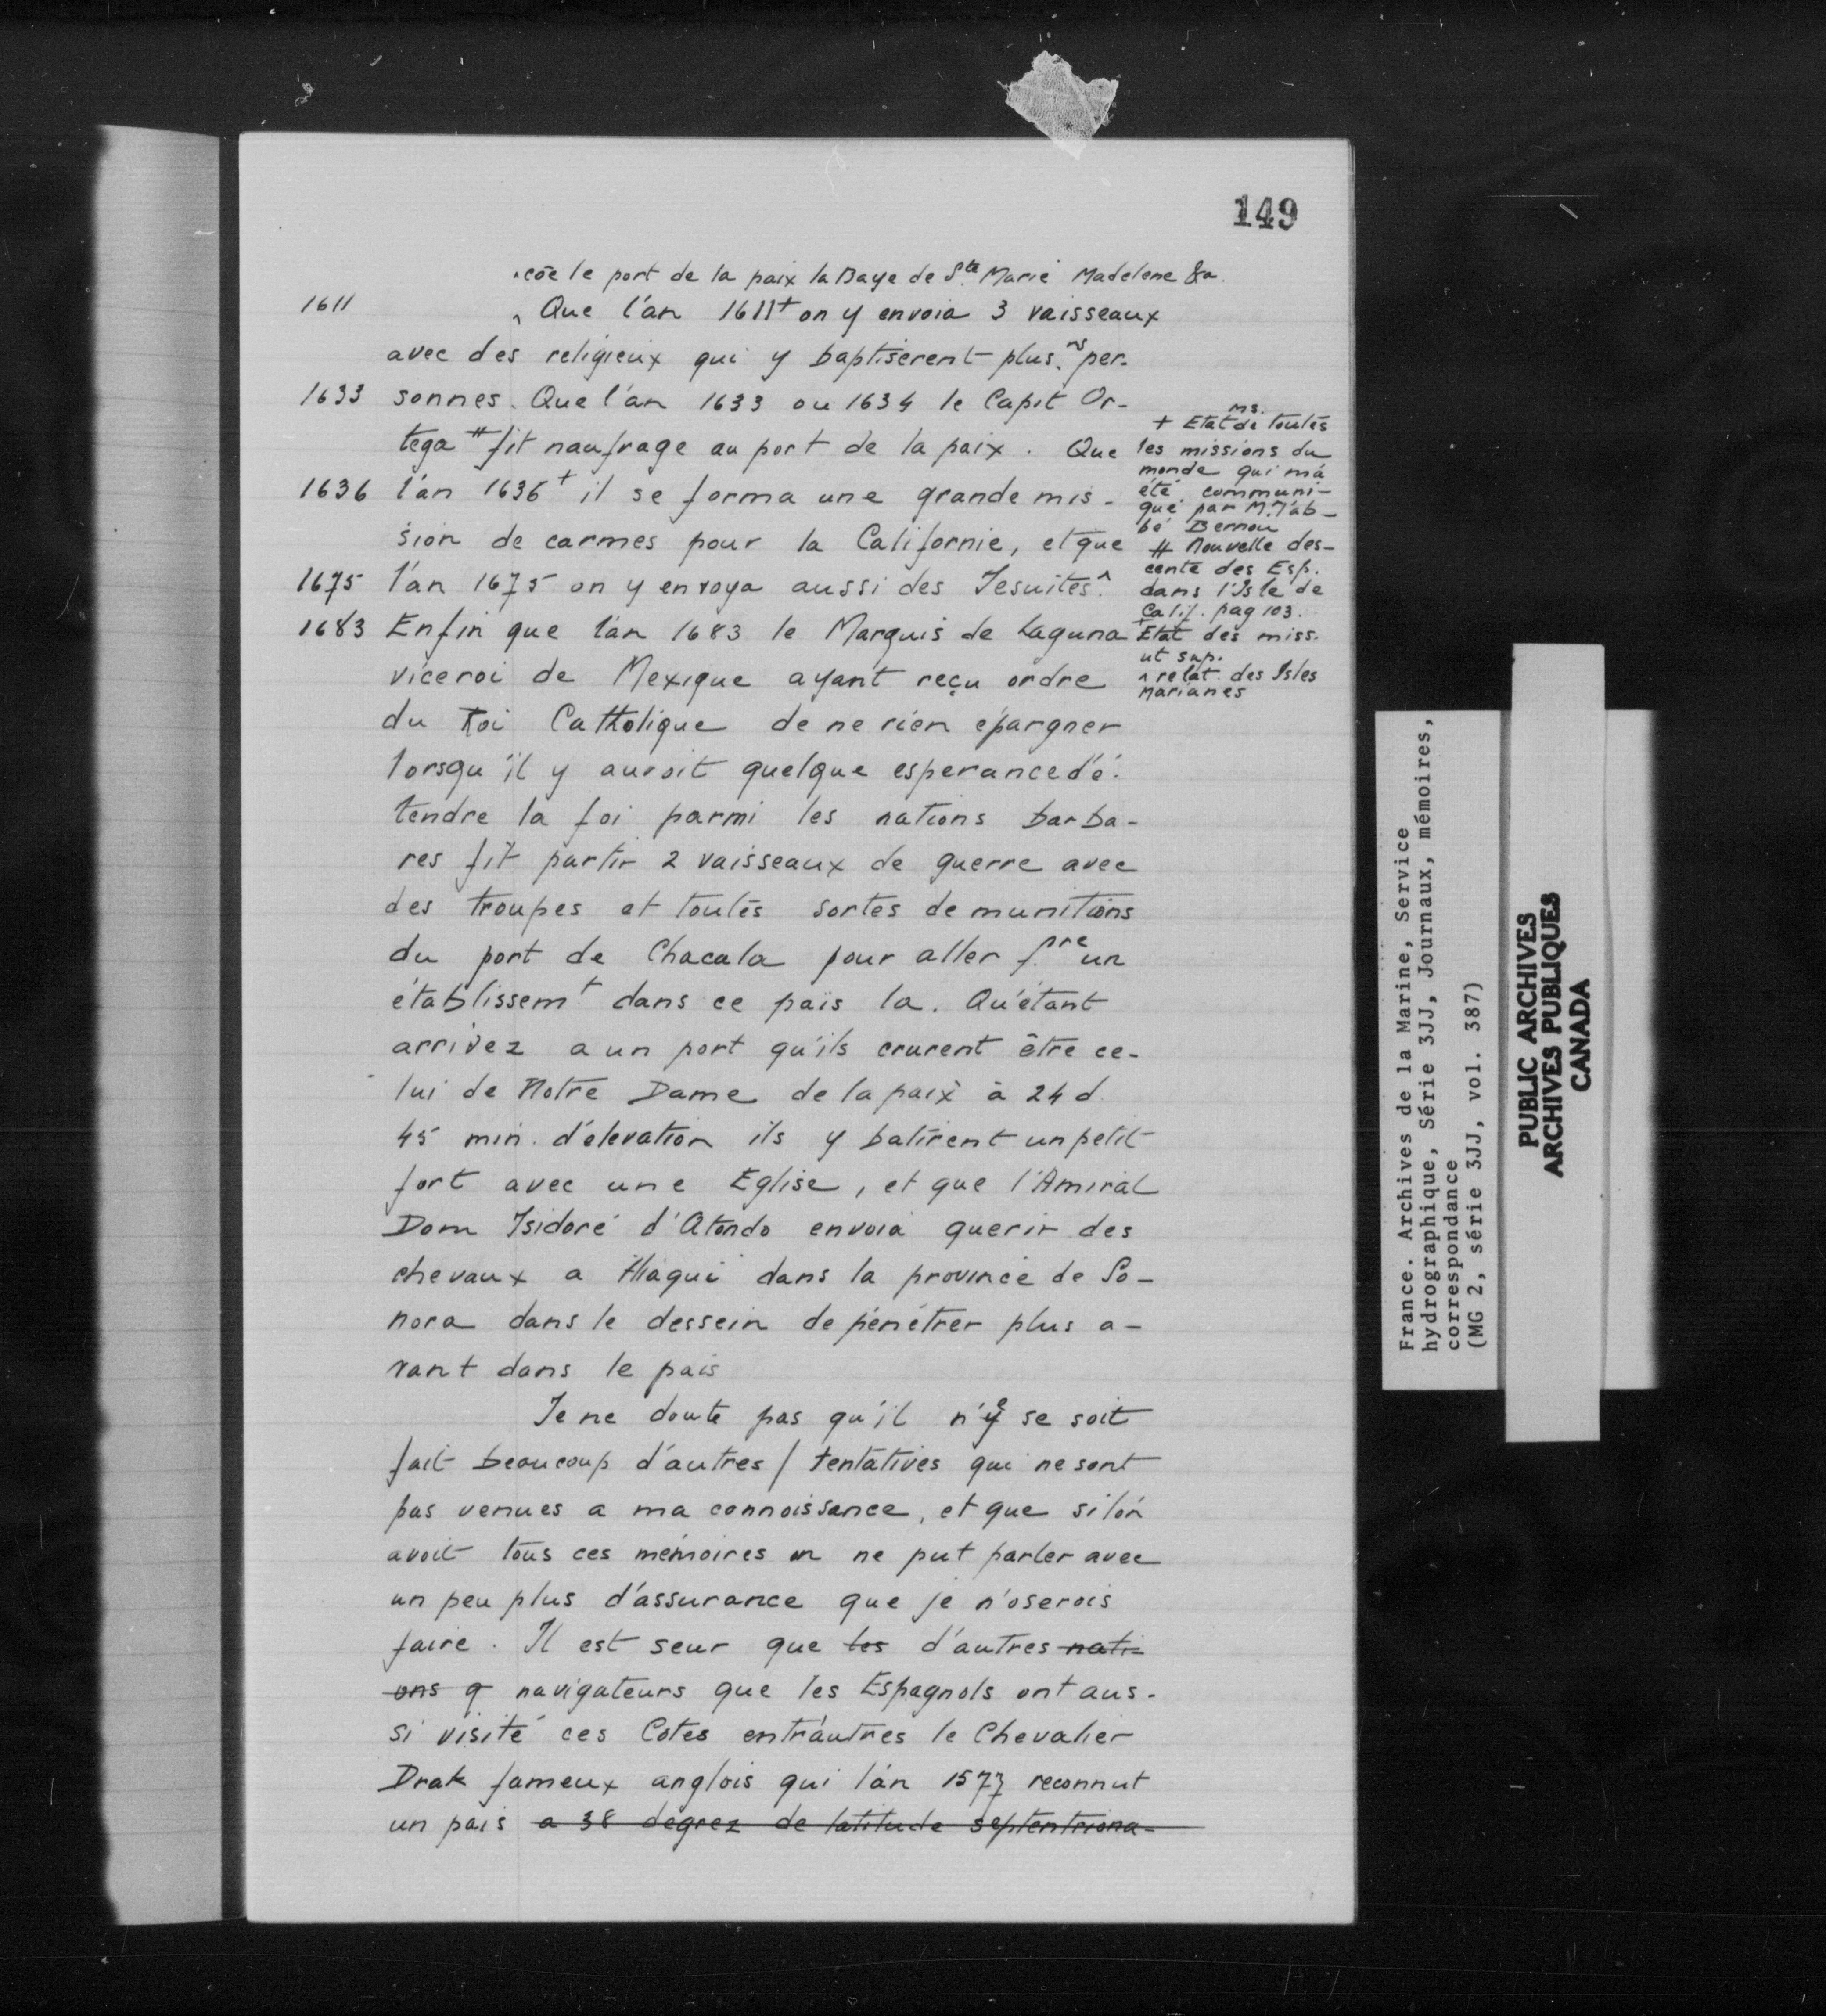 149
^cōe le port de la paix la Baye de Ste Marie Madelene &a.
1611 ^ Que l'an 1611+ on y envoia 3 vaisseaux
avec des religieux qui y baptiserent plus.rs per-
1633 sonnes. Que l'an 1633 ou 1634 le Capit Or-
tega # fit naufrage au port de la paix. Que
1636 l'an 1636+ il se forma une grande mis-
sion de carmes pour la Californie, et que
1675 l'an 1675 on y envoya aussi des Jesuites.^
1683 Enfin que l'an 1683 le Marquis de Laguna
viceroi de Mexique ayant reçu ordre
du Roi Catholique de ne rien épargner
lorsqu'il y auroit quelque esperance d'é-
tendre la foi parmi les nations barba-
res fit partir 2 vaisseaux de guerre avec
des troupes et toutes sortes de munitions
du port de Chacala pour aller f.re un
établissemt dans ce païs la. Qu'étant
arrivez a un port qu'ils crurent être ce-
lui de Notre Dame de la paix à 24 d.
45 min. d'élevation ils y batirent un petit
fort avec une Eglise, et que l'Amiral
Dom Isidore d'Atondo envoia querir des
chevaux a Hiaqui dans la province de So-
nora dans le dessein de pénétrer plus a-
vant dans le pais
Je ne doute pas qu'il n'ye se soit
fait beaucoup d'autres / tentatives qui ne sont
pas venues a ma connoissance, et que si l'on
avoit tous ces mémoires on ne put parler avec
un peu plus d'assurance que je n'oserois
faire. Il est seur que les d'autres nati-
ons q navigateurs que les Espagnols ont aus-
si visité ces Cotes entr'autres le Chevalier
Drak fameux anglois qui l'an 1577 reconnut
un pais a 38 degrez de latitude septentriona-
+ Etat ms. de toutes
les missions du
monde qui m'a
été communi-
qué par M. l'ab-
bé Bernou
# Nouvelle des-
cente des Esp.
dans l'Isle de
Calif. pag 103.
+ Etat des miss.
ut sup.
^ relat. des Isles
Marianes
France. Archives de la Marine, Service
hydrographique, Série 3JJ, Journaux, mémoires,
correspondance
(MG 2, série 3JJ, vol. 387)
PUBLIC ARCHIVES
ARCHIVES PUBLIQUES
CANADA